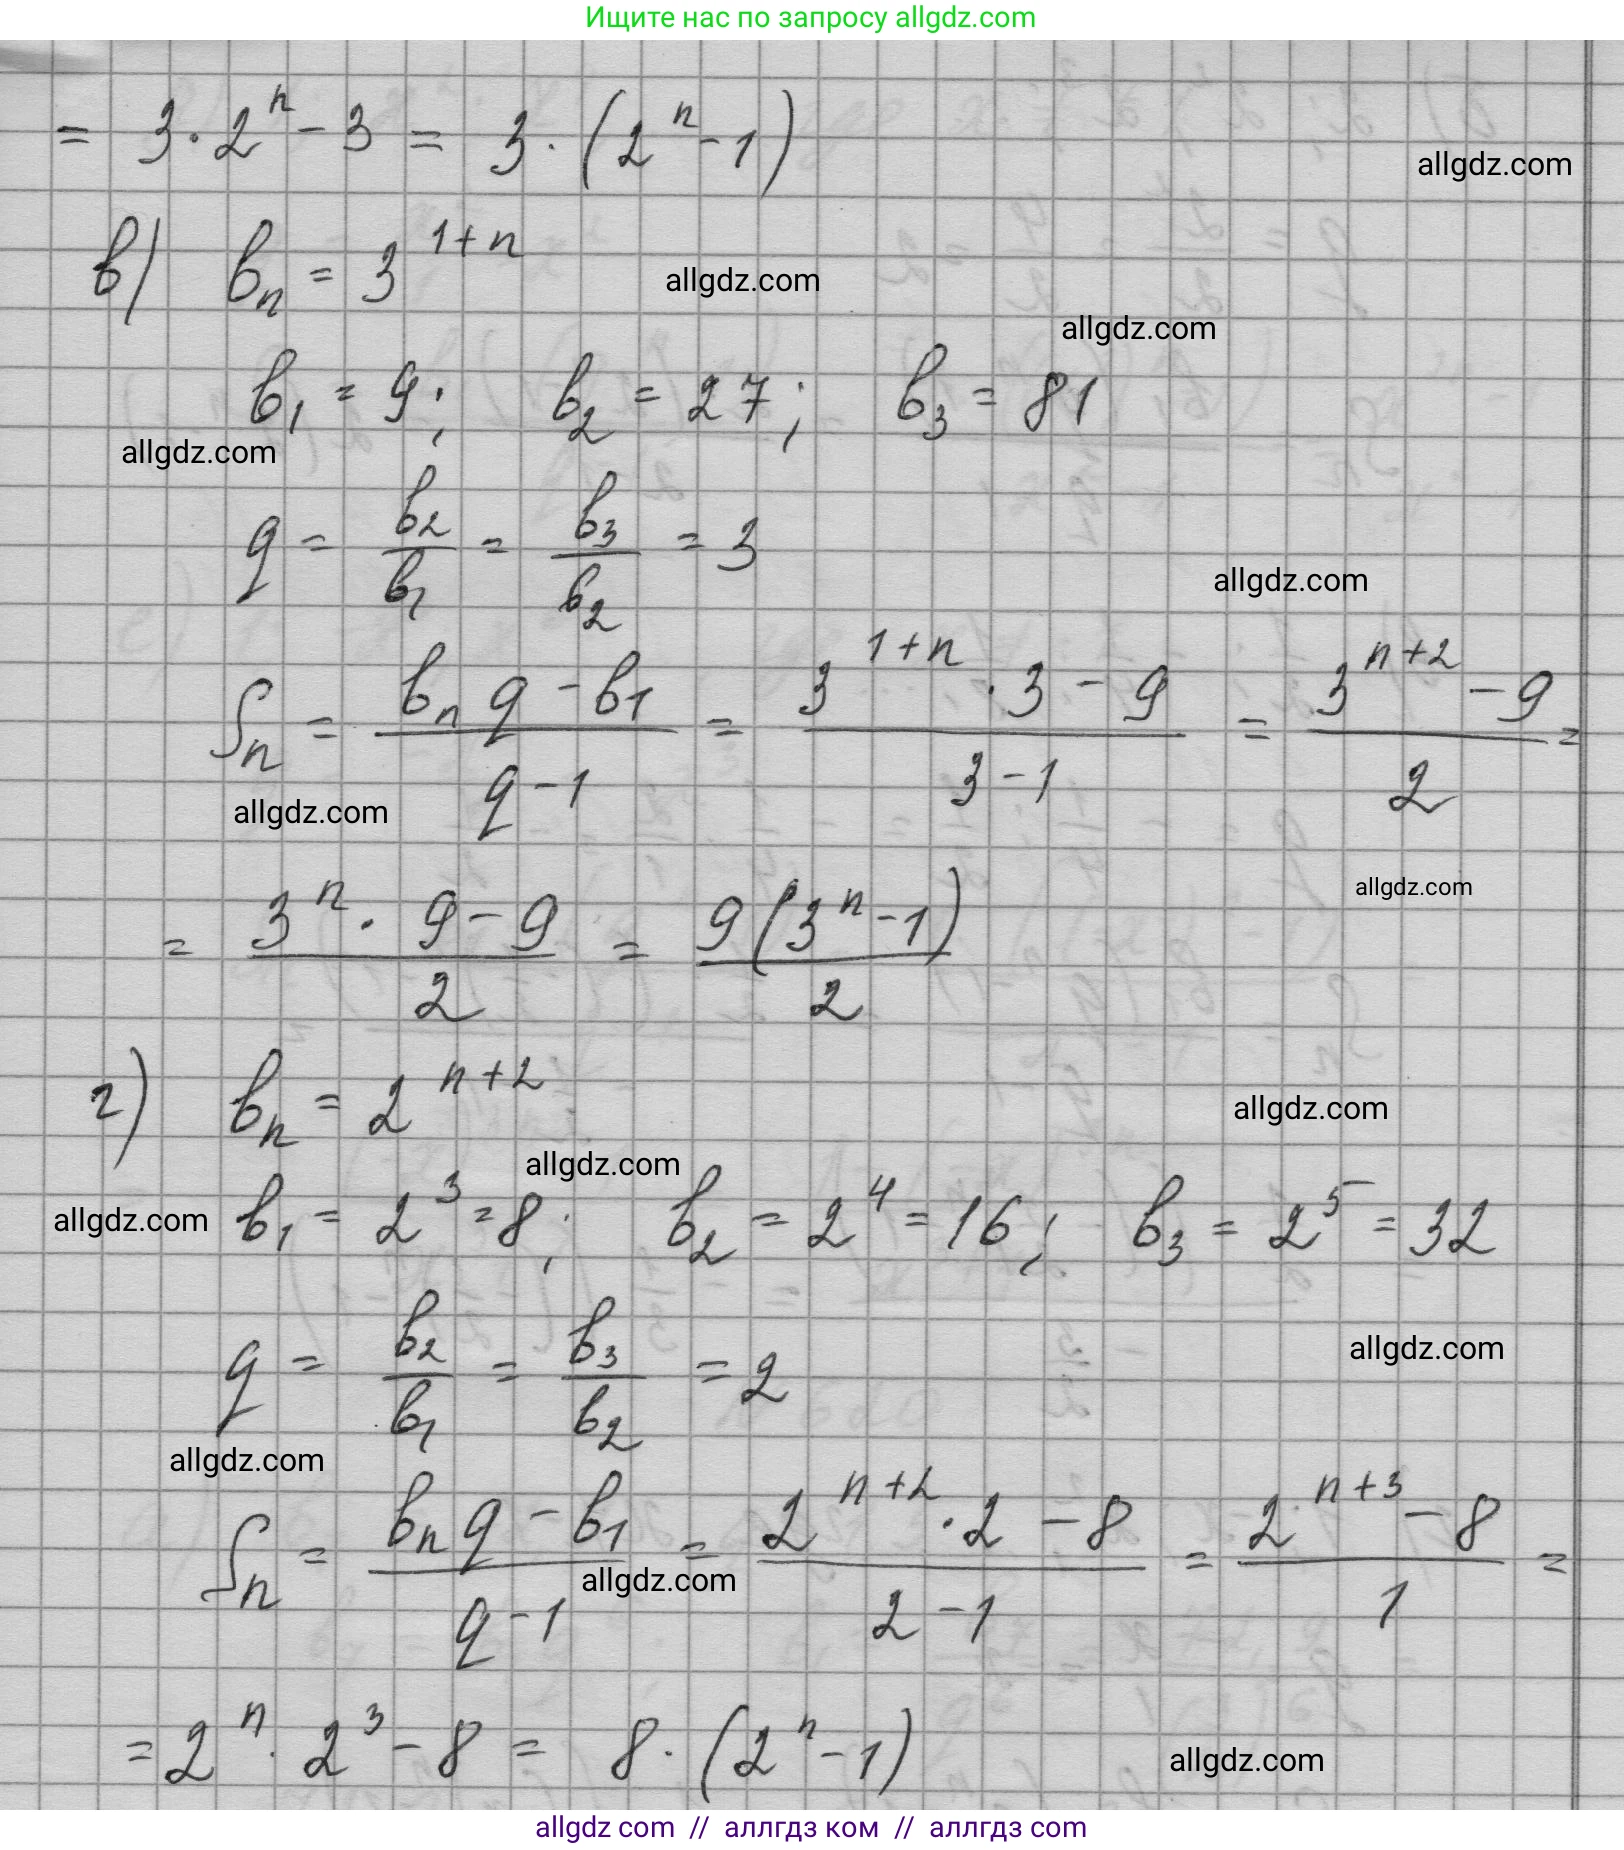 Ищите нас по запросу allgdz.com
= 3 · 2^n - 3 = 3 · (2^n - 1)
allgdz.com
в) b_n = 3^{1+n}
allgdz.com
allgdz.com
b_1 = 9; b_2 = 27; b_3 = 81
allgdz.com
q = b_2/b_1 = b_3/b_2 = 3
allgdz.com
S_n = (b_n q - b_1)/(q - 1) = (3^{1+n} · 3 - 9)/(3 - 1) = (3^{n+2} - 9)/2 =
allgdz.com
allgdz.com
= (3^n · 9 - 9)/2 = 9(3^n - 1)/2
г) b_n = 2^{n+2}
allgdz.com
allgdz.com
allgdz.com
b_1 = 2^3 = 8; b_2 = 2^4 = 16; b_3 = 2^5 = 32
q = b_2/b_1 = b_3/b_2 = 2
allgdz.com
allgdz.com
S_n = (b_n q - b_1)/(q - 1) = (2^{n+2} · 2 - 8)/(2 - 1) = (2^{n+3} - 8)/1 =
allgdz.com
= 2^n · 2^3 - 8 = 8 · (2^n - 1)
allgdz.com
allgdz com // аллгдз ком // аллгдз com